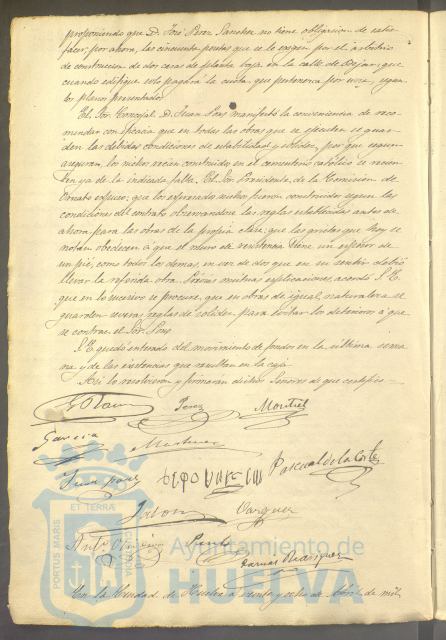 proponiendo que D. José Perez Sanchez no tiene obligacion de satis-
facer, por ahora, las cincuenta pesetas que se le exigen por el arbitrio
de construccion de dos casas de planta baja en la calle de Bejar; que
cuando edifique solo pagará la cuota, que pertenezca por una, segun
los planos presentados.
El Sor. Concejal D. Juan Pons manifestó la conveniencia de reco-
mendar con eficacia que en todas las obras que se ejecuten se guar-
den las debidas condiciones de estabilidad y solidez, por que segun
aseguran, los nichos recien construidos en el cementerio catolico se resien-
ten ya de la indicada falta. El Sor. Presidente de la Comision de
Ornato expuso; que los referidos nichos fueron construidos segun las
condiciones del contrato observandose las reglas establecidas antes de
ahora para las obras de la propia clase; que las grietas que hoy se
notan obedecen á que el muro de resistencia tiene un espesor de
un pié, como todos los demas, en vez de dos que en su sentir debió
llevar la referida obra. Previas mutuas esplicaciones, acordó S. E.
que en lo sucesivo se procure, que en obras de igual naturaleza se
guarden severas reglas de solidez, para evitar los deterioros á que
se contrae el Sor. Pons.
S. E. quedó enterado del movimiento de fondos en la ultima sema-
na y de las existencias que resultan en la caja.
Asi lo resolvieron y firmaran dichos Señores de que certifico =
Perez Montiel
Garcia Martinez
Juan Pons Pascual de la Corte
Jalon Vazquez
Rodriguez
En la Ciudad de Huelva á veinte y ocho de Abril de mil
PORTUS MARIS ET TERRAE CUSTODIA
Ayuntamiento de
HUELVA